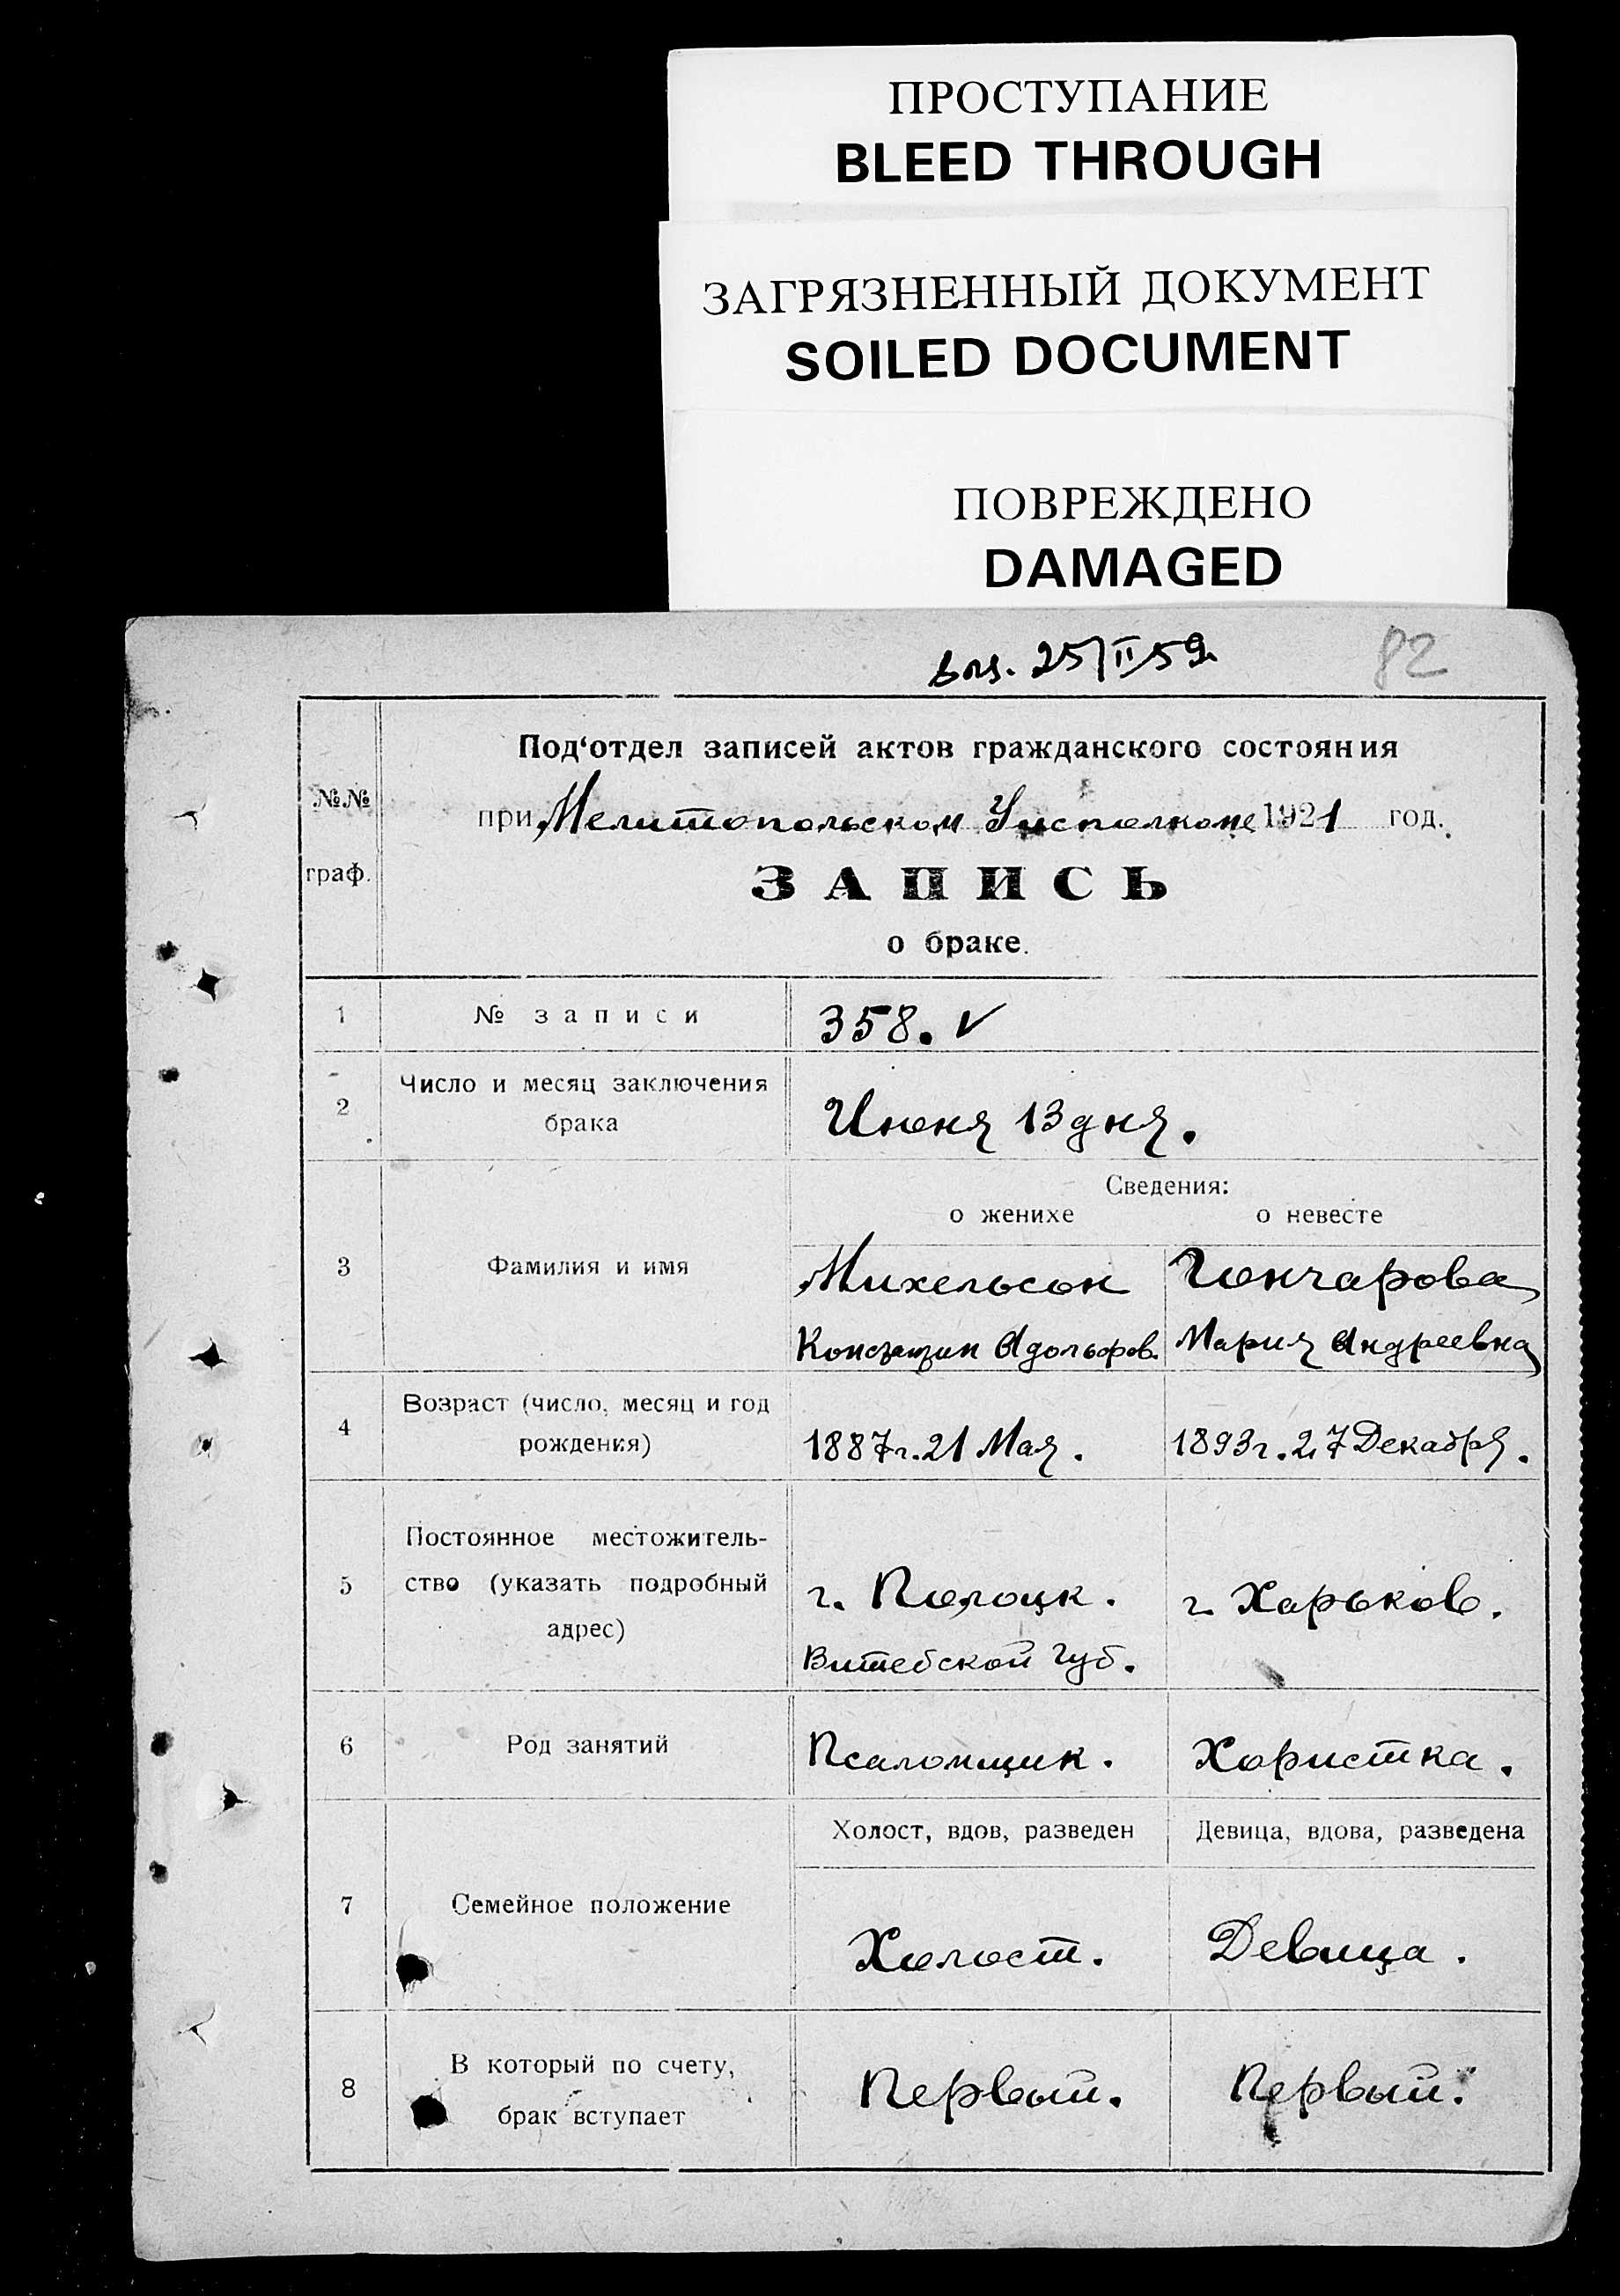 ПРОСТУПАНИЕ
BLEED THROUGH
ЗАГРЯЗНЕННЫЙ ДОКУМЕНТ
SOILED DOCUMENT
ПОВРЕЖДЕНО
DAMAGED
25/II 59
82
№№ граф.
Под‘отдел записей актов гражданского состояния
при Мелитопольском Уисполкоме 1921 год.
ЗАПИСЬ
о браке.
1 № записи 358. ✓
2 Число и месяц заключения
брака
Июня 13 дня.
Сведения:
о женихе о невесте
3 Фамилия и имя
Михельсон Гончарова
Константин Адольфов. Мария Андреевна
4 Возраст (число, месяц и год
рождения)
1887 г. 21 Мая. 1893 г. 27 Декабря.
5 Постоянное местожитель-
ство (указать подробный
адрес)
г. Полоцк. г. Харьков.
Витебской губ.
6 Род занятий Псаломщик. Хористка.
Холост, вдов, разведен Девица, вдова, разведена
7 Семейное положение
Холост. Девица.
8 В который по счету,
брак вступает
Первый. Первый.